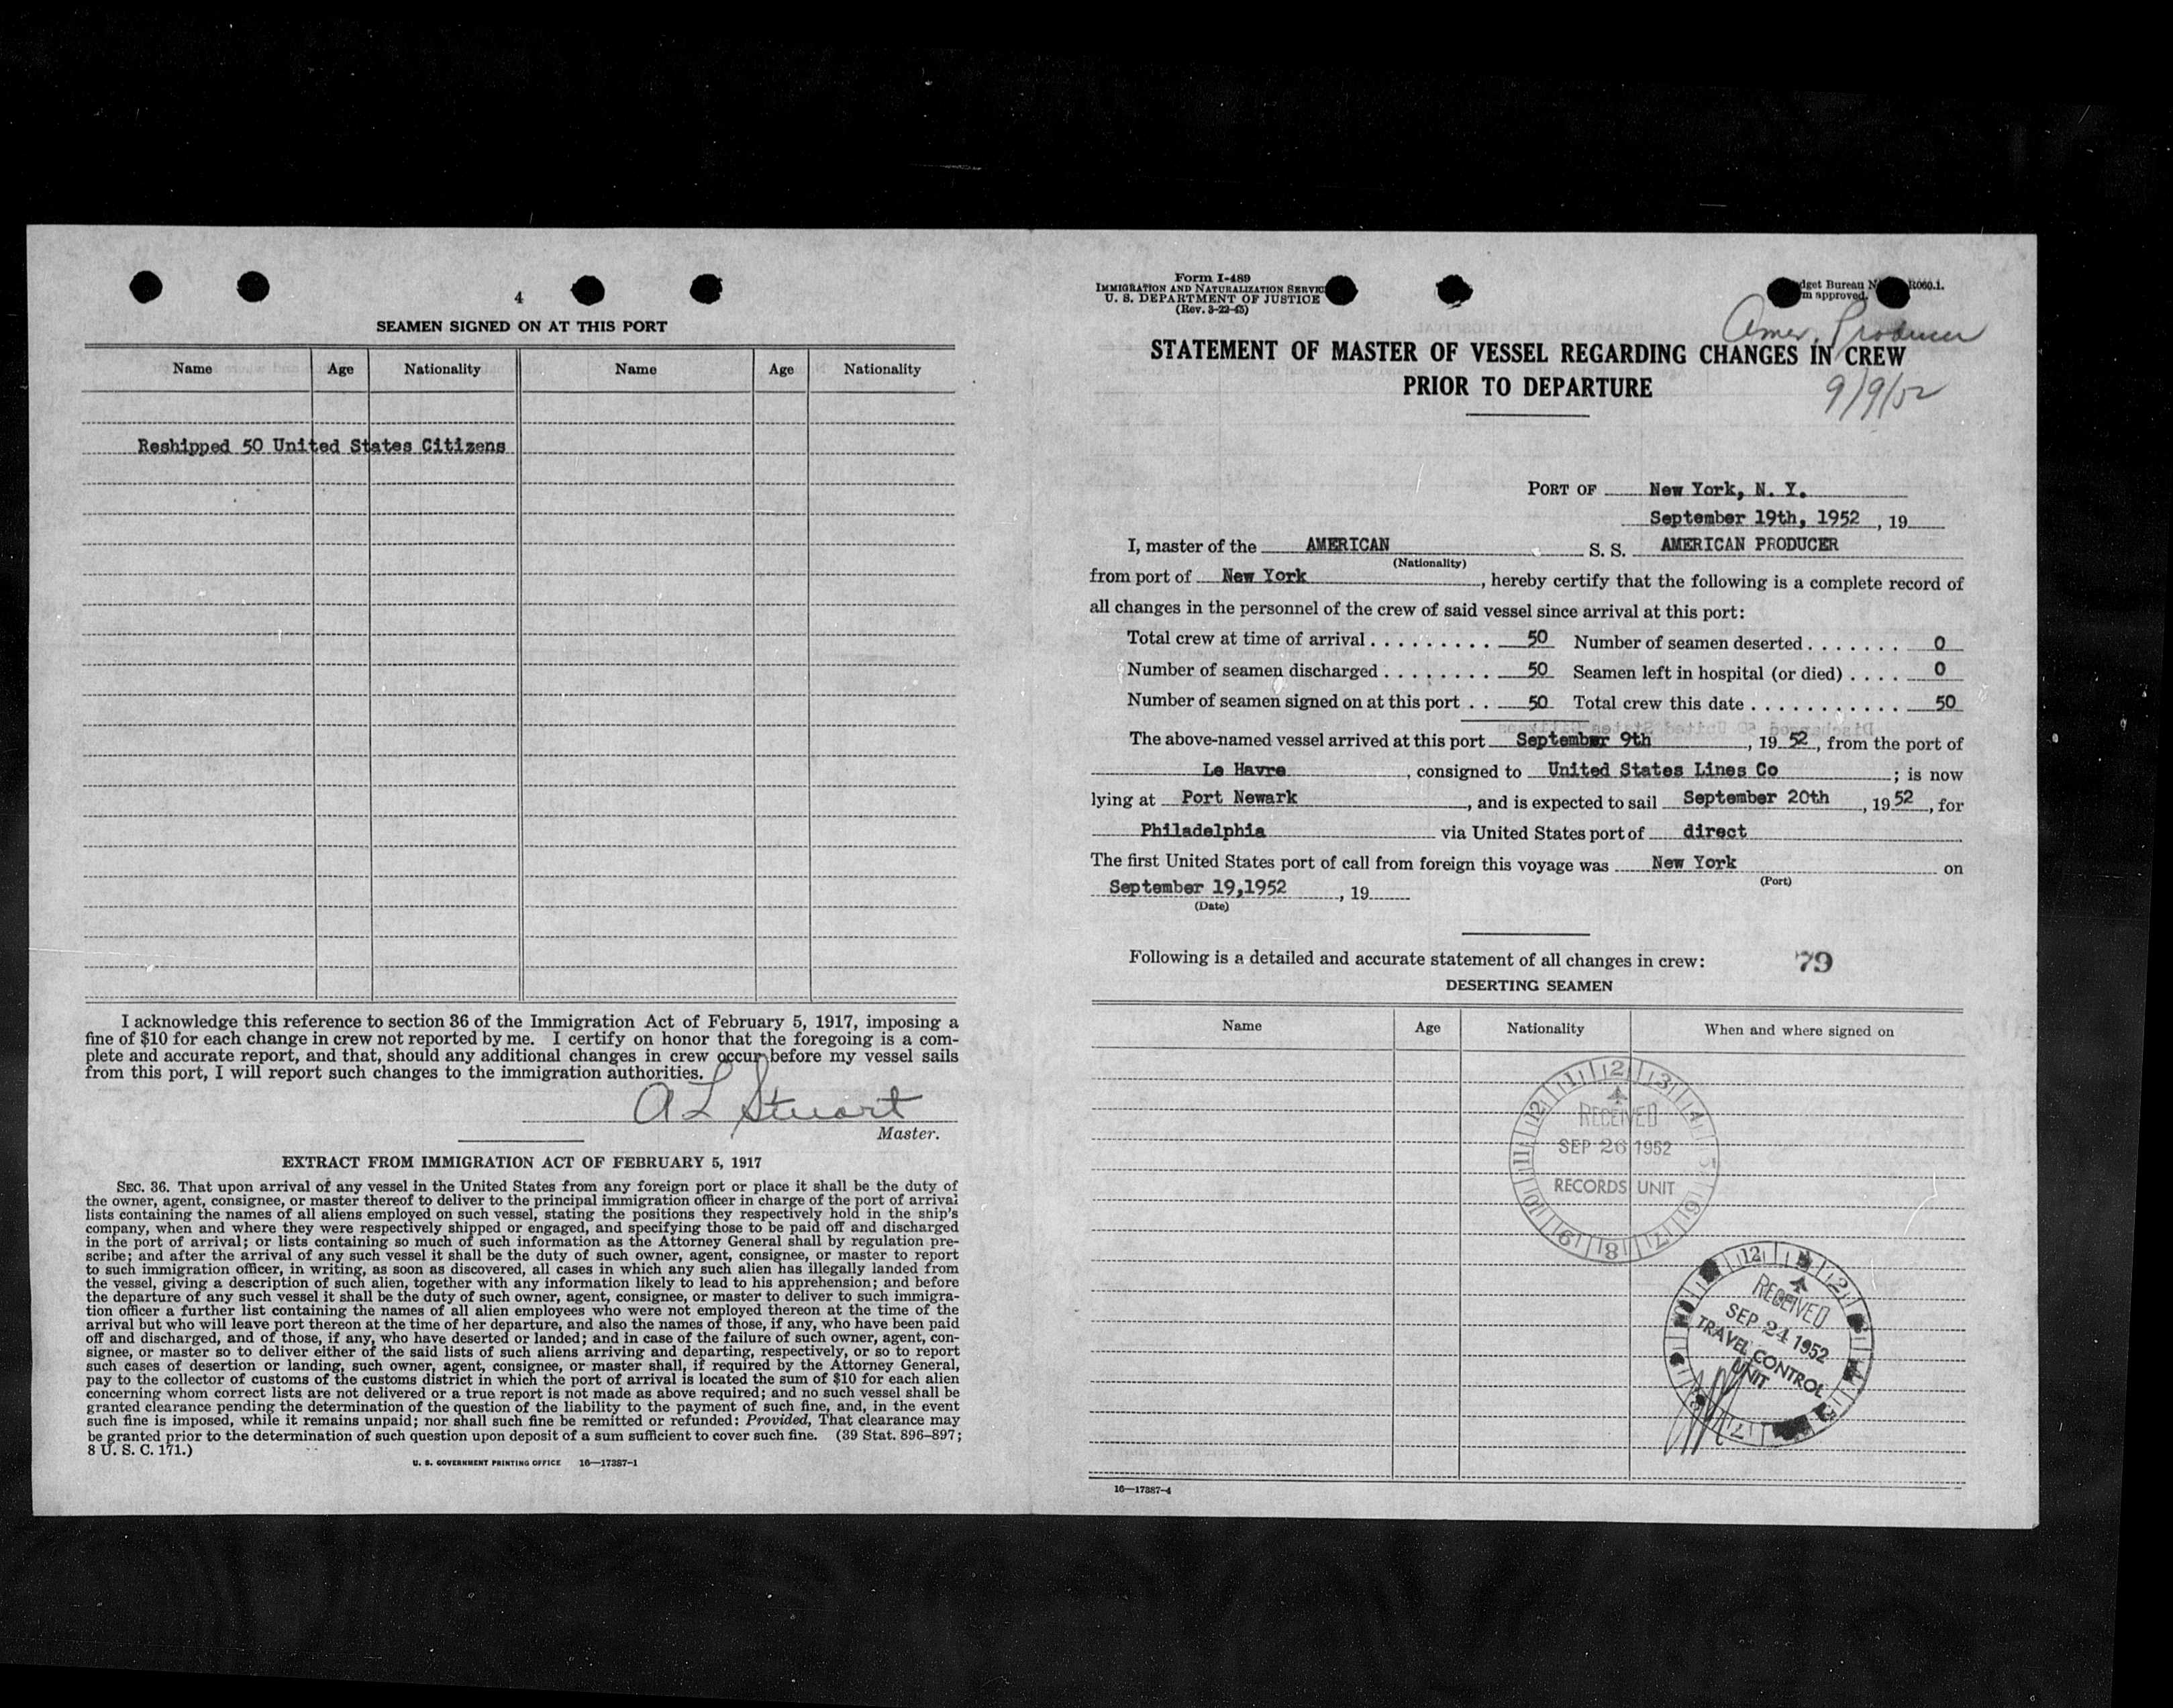 4
SEAMEN SIGNED ON AT THIS PORT
Name Age Nationality Name Age Nationality
Reshipped 50 United States Citizens
I acknowledge this reference to section 36 of the Immigration Act of February 5, 1917, imposing a
fine of $10 for each change in crew not reported by me. I certify on honor that the foregoing is a com-
plete and accurate report, and that, should any additional changes in crew occur before my vessel sails
from this port, I will report such changes to the immigration authorities.
A L Stuart
Master.
EXTRACT FROM IMMIGRATION ACT OF FEBRUARY 5, 1917
SEC. 36. That upon arrival of any vessel in the United States from any foreign port or place it shall be the duty of
the owner, agent, consignee, or master thereof to deliver to the principal immigration officer in charge of the port of arrival
lists containing the names of all aliens employed on such vessel, stating the positions they respectively hold in the ship's
company, when and where they were respectively shipped or engaged, and specifying those to be paid off and discharged
in the port of arrival; or lists containing so much of such information as the Attorney General shall by regulation pre-
scribe; and after the arrival of any such vessel it shall be the duty of such owner, agent, consignee, or master to report
to such immigration officer, in writing, as soon as discovered, all cases in which any such alien has illegally landed from
the vessel, giving a description of such alien, together with any information likely to lead to his apprehension; and before
the departure of any such vessel it shall be the duty of such owner, agent, consignee, or master to deliver to such immigra-
tion officer a further list containing the names of all alien employees who were not employed thereon at the time of the
arrival but who will leave port thereon at the time of her departure, and also the names of those, if any, who have been paid
off and discharged, and of those, if any, who have deserted or landed; and in case of the failure of such owner, agent, con-
signee, or master so to deliver either of the said lists of such aliens arriving and departing, respectively, or so to report
such cases of desertion or landing, such owner, agent, consignee, or master shall, if required by the Attorney General,
pay to the collector of customs of the customs district in which the port of arrival is located the sum of $10 for each alien
concerning whom correct lists are not delivered or a true report is not made as above required; and no such vessel shall be
granted clearance pending the determination of the question of the liability to the payment of such fine, and, in the event
such fine is imposed, while it remains unpaid; nor shall such fine be remitted or refunded: Provided, That clearance may
be granted prior to the determination of such question upon deposit of a sum sufficient to cover such fine. (39 Stat. 896–897;
8 U. S. C. 171.)
U. S. GOVERNMENT PRINTING OFFICE 16—17387-1
Form I-489
IMMIGRATION AND NATURALIZATION SERVICE
U. S. DEPARTMENT OF JUSTICE
(Rev. 3-22-45)
Bureau
approved.
Amer. Producer
STATEMENT OF MASTER OF VESSEL REGARDING CHANGES IN CREW
PRIOR TO DEPARTURE
9/9/52
PORT OF New York, N. Y.
September 19th, 1952, 19
I, master of the AMERICAN S. S. AMERICAN PRODUCER
(Nationality)
from port of New York, hereby certify that the following is a complete record of
all changes in the personnel of the crew of said vessel since arrival at this port:
Total crew at time of arrival . . . . . . . . . . 50 Number of seamen deserted . . . . . . . 0
Number of seamen discharged . . . . . . . . 50 Seamen left in hospital (or died) . . . . 0
Number of seamen signed on at this port . . 50 Total crew this date . . . . . . . . . . . 50
The above-named vessel arrived at this port September 9th, 19 52, from the port of
Le Havre, consigned to United States Lines Co; is now
lying at Port Newark, and is expected to sail September 20th, 19 52, for
Philadelphia via United States port of direct
The first United States port of call from foreign this voyage was New York on
(Port)
September 19,1952, 19
(Date)
Following is a detailed and accurate statement of all changes in crew: 79
DESERTING SEAMEN
Name Age Nationality When and where signed on
RECEIVED
SEP 26 1952
RECORDS UNIT
RECEIVED
SEP 24 1952
TRAVEL CONTROL
UNIT
16—17387-4